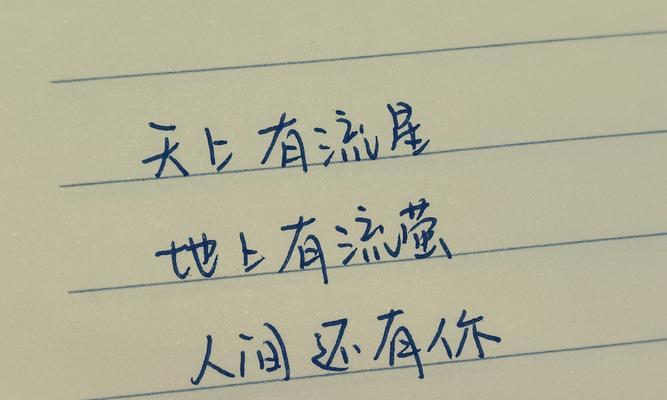 天上有流星
地上有流萤
人间还有你